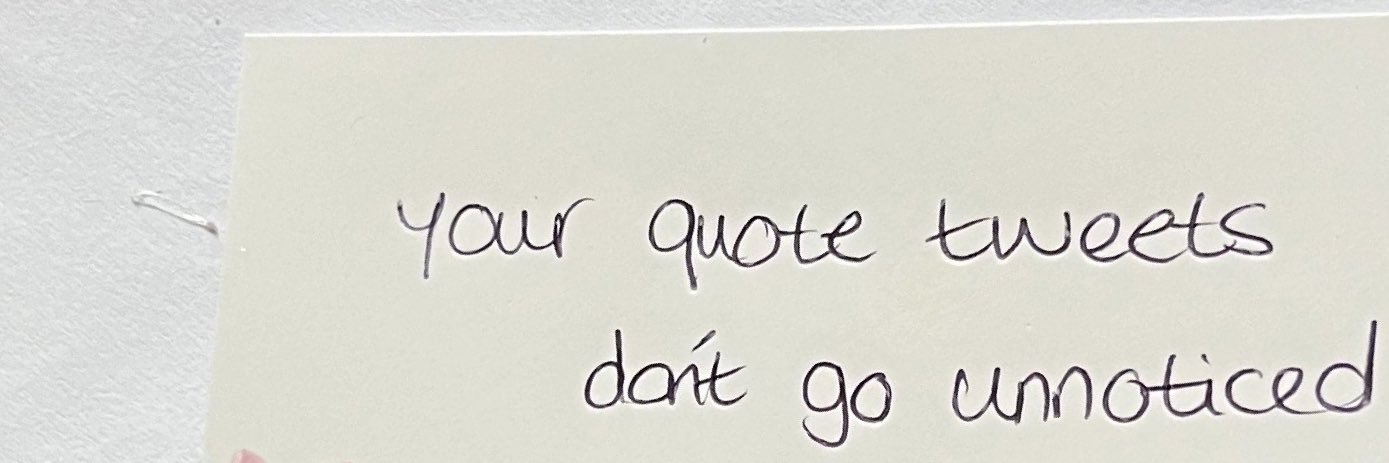 your quote tweets
don't go unnoticed